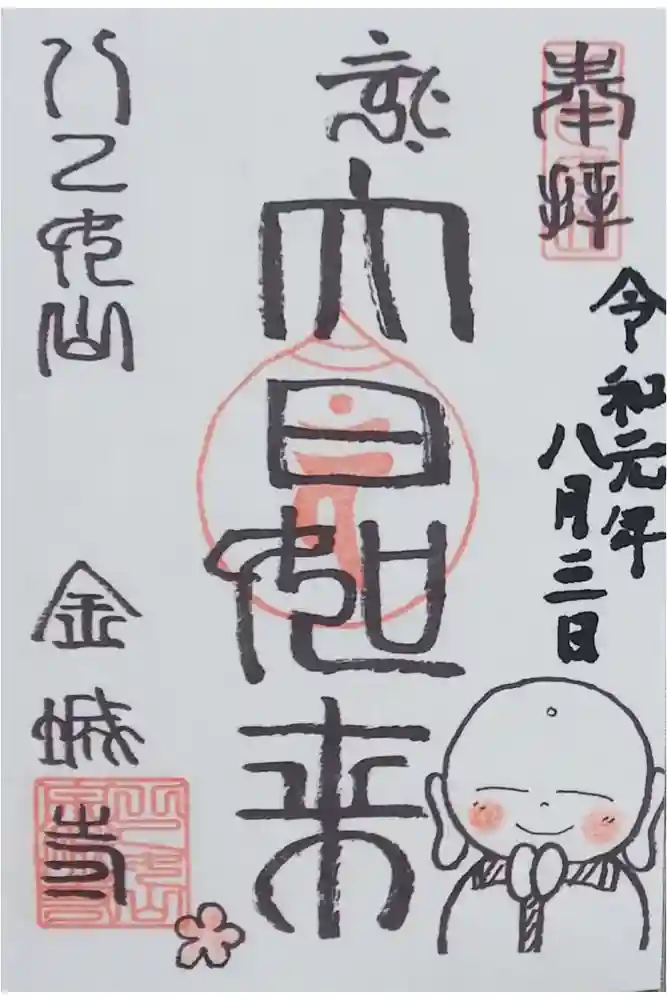 奉拝
令和元年
八月三日
大日如来
八乙女山
金城寺